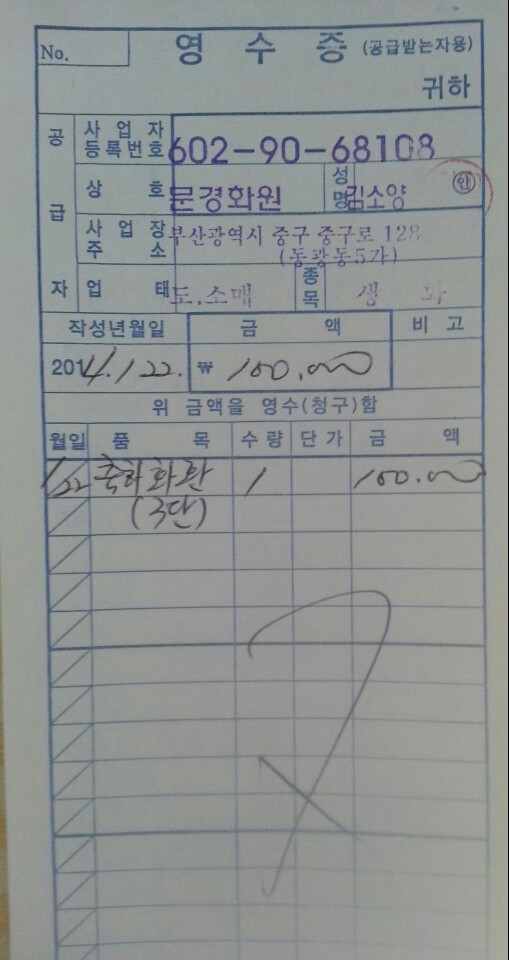 No. 영 수 증 (공급받는자용)
귀하
공급자
사업자등록번호 602-90-68108
상호 문경화원 성명 김소양 인
사업장주소 부산광역시 중구 중구로 128
(동광동5가)
업태 도.소매 종목 생 화
작성년월일 금 액 비 고
2014.1.22. ₩ 100.000
위 금액을 영수(청구)함
월일 품 목 수량 단가 금 액
1/22 축하화환 1 100.000
(3단)